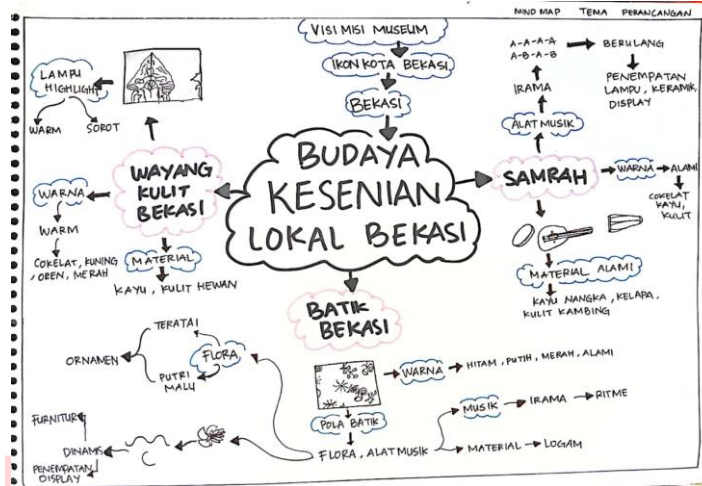 MIND MAP TEMA PERANCANGAN
VISI MISI MUSEUM
IKON KOTA BEKASI
BEKASI
BUDAYA
KESENIAN
LOKAL BEKASI
LAMPU
HIGHLIGHT
WARM
SOROT
WAYANG
KULIT
BEKASI
WARNA
WARM
COKELAT, KUNING
, OREN, MERAH
MATERIAL
KAYU, KULIT HEWAN
A-A-A-A
A-B-A-B
BERULANG
PENEMPATAN
LAMPU, KERAMIK,
DISPLAY
IRAMA
ALAT MUSIK
SAMRAH
WARNA
ALAMI
COKELAT
KAYU,
KULIT
MATERIAL ALAMI
KAYU NANGKA, KELAPA,
KULIT KAMBING
BATIK
BEKASI
WARNA
HITAM, PUTIH, MERAH, ALAMI
POLA BATIK
FLORA, ALAT MUSIK
MUSIK
IRAMA
RITME
MATERIAL
LOGAM
FLORA
TERATAI
PUTRI
MALU
ORNAMEN
FURNITUR
DINAMIS
PENEMPATAN
DISPLAY